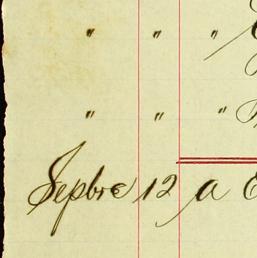 " " "
" " "
Sepbre 12 a